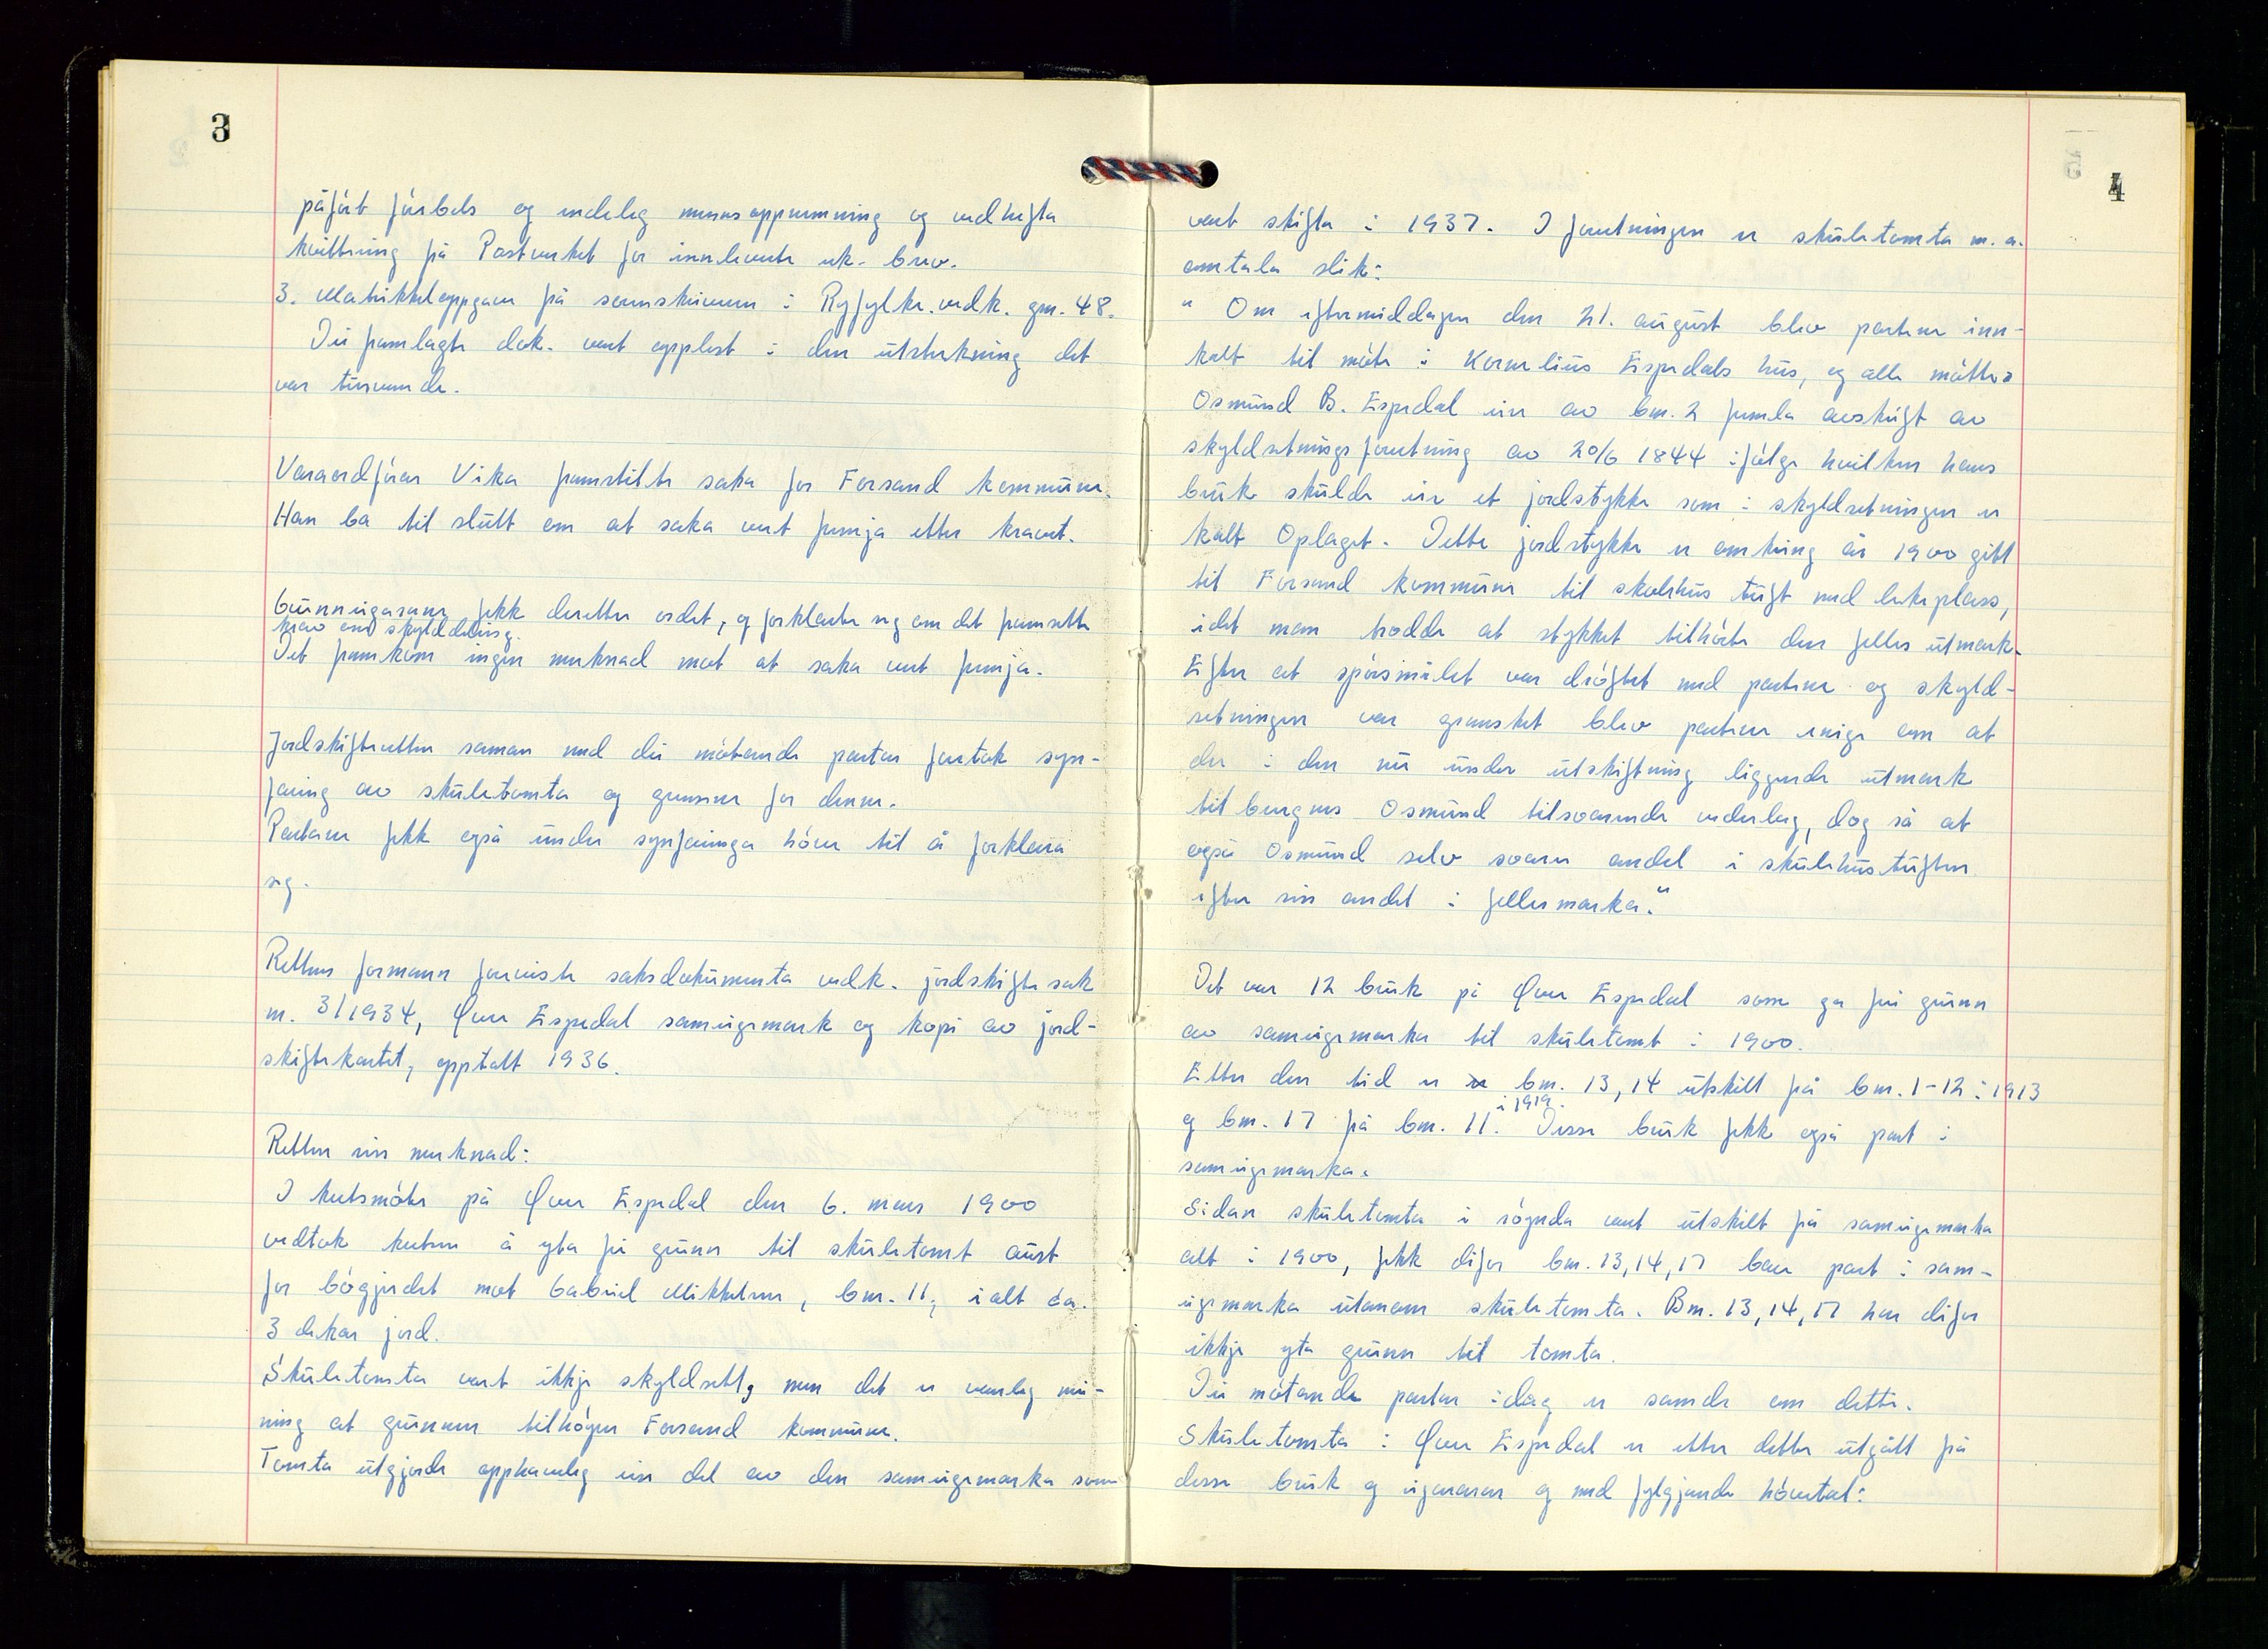 3
påført førbels og endeleg minneoppnemning og vedhefta
kvittring frå Postverket for innleverte rek. brev.
3. Matrikkeloppgaver frå sorenskrivaren i Ryfylke. vedk. gnr. 48.
Dei framlagte dok. vart opplest i den utstrekning det
var turvande.
Varaordførar Vika framstilte saka for Forsand kommune.
Han ba til slutt om at saka vart fremja etter kravet.
Grunneigarane fekk deretter ordet, og forklarte seg om det framsette
krav om skylddeling.
Det framkom ingen merknad mot at saka vart fremja.
Jordskifteretten saman med dei møtande partar foretok syn-
faring av skuletomta og grensene for denne.
Partane fekk også under synfaringa høve til å forklara
seg.
Rettens formann foreviste saksdokumenta vedk. jordskiftesak
nr. 3/1934, Øvre Espedal sameigemark og kopi av jord-
skiftekartet, opptatt 1936.
Retten sin merknad:
I kretsmøte på Øvre Espedal den 6. mars 1900
vedtok kretsen å yta fri grunn til skuletomt aust
for bøgjerdet mot Gabriel Mikkelsen, bnr. 11, ialt ca.
3 dekar jord.
Skuletomta vart ikkje skyldsett, men det er vanleg mei-
ning at grunnen tilhøyrer Forsand kommune.
Tomta utgjorde opphavleg ein del av den sameigemarka som
4
vart skifta i 1937. I forretningen er skuletomta m.a.
omtala slik:
" Om eftermiddagen den 21. august blev partene inn-
kalt til møte i Kornelius Espedals hus, og alle møtte.
Osmund B. Espedal eier av bnr. 2 fremla avskrift av
skyldsetningsforretning av 20/6 1844 ifølge hvilken hans
bruk skulde eie et jordstykke som i skyldsetningen er
kalt Oplaget. Dette jordstykke er omkring år 1900 gitt
til Forsand kommune til skolehus tuft med lekeplass,
idet man trodde at stykket tilhørte den felles utmark.
Efter at spørsmålet var drøftet med partene og skyld-
setningen var gransket blev partene enige om at
der i den nu under utskiftning liggende utmark
tilberegnes Osmund tilsvarende vederlag, dog så at
også Osmund selv svarer andel i skulehustuften
efter sin andel i fellesmarka."
Det var 12 bruk på Øvre Espedal som ga fri grunn
av sameigemarka til skuletomt i 1900.
Etter den tid er bnr. 13, 14 utskilt frå bnr. 1-12 i 1913
og bnr. 17 frå bnr. 11. i 1919. Desse bruk fekk også part i
sameigemarka.
Sidan skuletomta i røynda vart utskilt frå sameigemarka
alt i 1900, fekk difor bnr. 13, 14, 17 bare part i sam-
eigemarka utanom skuletomta. Bnr. 13, 14, 17 har difor
ikkje yta grunn til tomta.
Dei møtande partar idag er samde om dette.
Skuletomta i Øvre Espedal er etter dette utgått frå
desse bruk og eigararar og med fylgjande høvetal: